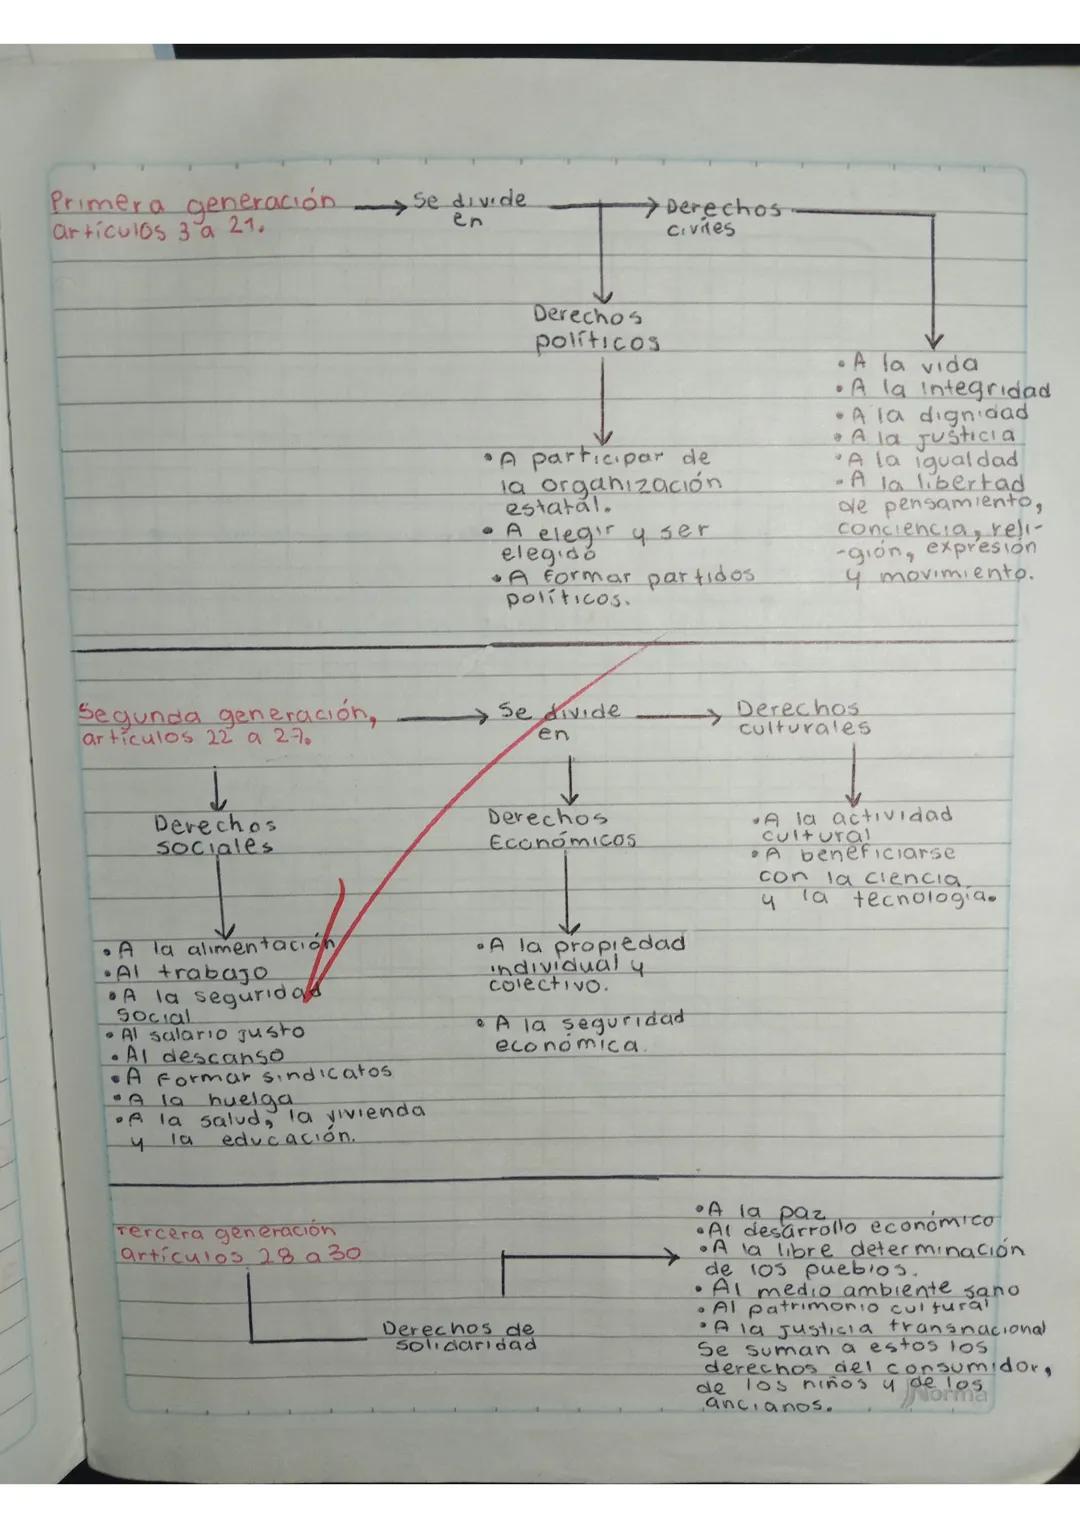 Primera generación
artículos 3 a 21.
Se divide
en
Derechos
civiles
Derechos
políticos
• A participar de
la organización
estatal.
• A elegir y ser
elegido
• A formar partidos
políticos.
• A la vida
• A la integridad
• A la dignidad
• A la justicia
• A la igualdad
• A la libertad
de pensamiento,
conciencia, reli-
-gión, expresión
y movimiento.
Segunda generación,
artículos 22 a 27.
Se divide
en
Derechos
culturales
Derechos
sociales
Derechos
Económicos
• A la actividad
cultural
• A beneficiarse
con la ciencia
y la tecnología.
• A la alimentación
• Al trabajo
• A la seguridad
social
• Al salario justo
• Al descanso
• A formar sindicatos
• A la huelga
• A la salud, la vivienda
y la educación.
• A la propiedad
individual y
colectivo.
• A la seguridad
económica.
Tercera generación
artículos 28 a 30
Derechos de
solidaridad
• A la paz
• Al desarrollo económico
• A la libre determinación
de los pueblos.
• Al medio ambiente sano
• Al patrimonio cultural
• A la justicia transnacional
Se suman a estos los
derechos del consumidor,
de los niños y de los
ancianos.
Norma